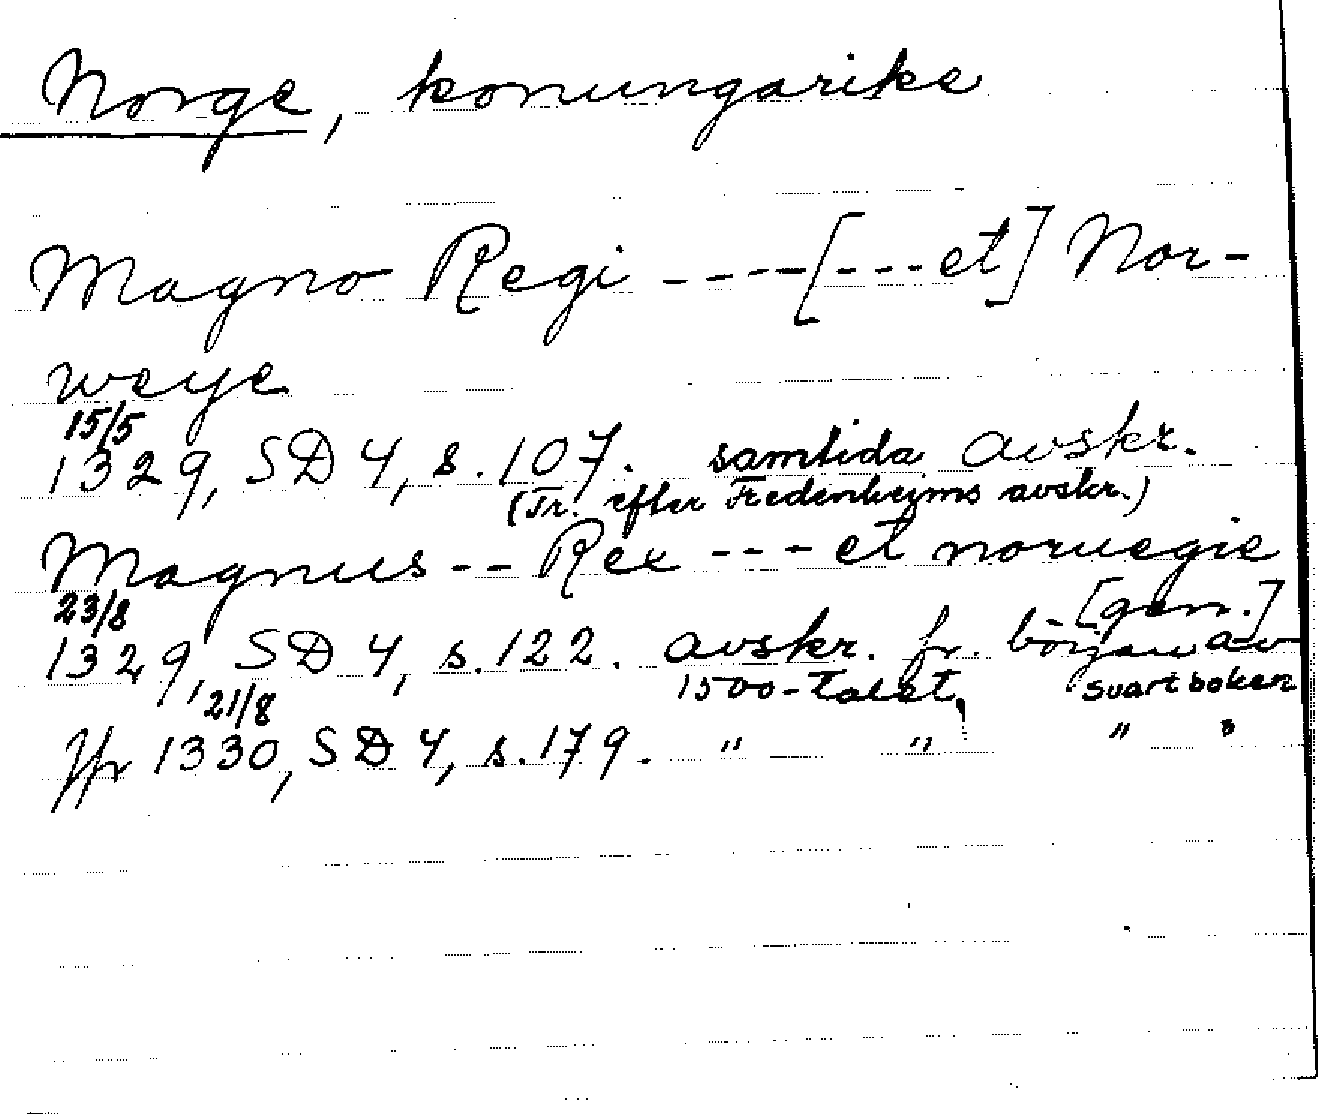 Norge, konungarike
Magno Regi ----[---et] Nor-
weye
15/5
1329, SD 4, s. 107. samtida avskr.
(Tr. efter Fredenheims avskr.)
Magnus -- Rex --- et noruegie
[gen.]
23/8
1329, SD 4, s. 122. avskr. fr. början av
1500-talet, Svartboken
21/8
Jfr 1330, SD 4, s. 179. " " " "